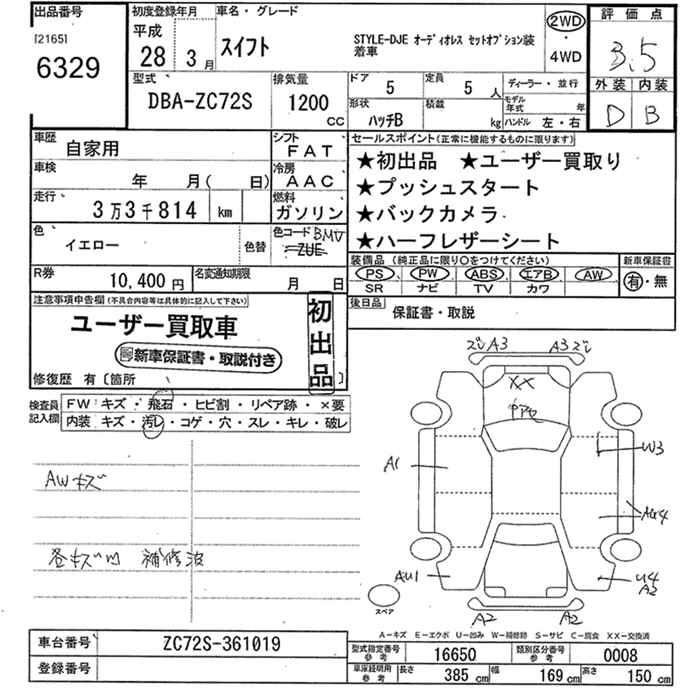 出品番号
[2165]
6329
初度登録年月
平成
28年3月
車名・グレード
スイフト
STYLE-DJE オーディオレス セットオプション装
着車
2WD
・
4WD
評価点
3.5
外装 内装
D B
型式
DBA-ZC72S
排気量
1200
CC
ドア
5
定員
5人
形状
ハッチB
積載
kg
ディーラー・並行
モデル年式 年
ハンドル 左・右
車歴
自家用
シフト
FAT
車検
年 月( 日)
冷房
AAC
走行
3万3千814 km
燃料
ガソリン
色
イエロー
色替
色コード BMV
ZUE
R券
10,400円
名変通知期限
月 日
セールスポイント(正常に機能するものに限ります)
★初出品 ★ユーザー買取り
★プッシュスタート
★バックカメラ
★ハーフレザーシート
装備品(純正品に限り○をつけてください)
PS PW ABS エアB AW
SR ナビ TV カワ
新車保証書
有・無
後日品
保証書・取説
注意事項申告欄(不具合内容等は具体的に記入して下さい)
ユーザー買取車
新車保証書・取説付き
初出品
修復歴 有〔箇所 〕
検査員
記入欄
FW キズ・飛石・ヒビ割・リペア跡・×要
内装 キズ・汚レ・コゲ・穴・スレ・キレ・破レ
AWキズ
各キズ凹 補修波
A3
A3
XX
A1
W3
AU4
AU1
U4
A2
A2
A2
スペア
A-キズ E-エクボ U-凹み W-補修跡 S-サビ C-腐食 XX-交換済
車台番号
ZC72S-361019
登録番号
型式指定番号
参考
16650
類別区分番号
参考
0008
車庫証明用
参考
長さ 385 cm
幅 169 cm
高さ 150 cm